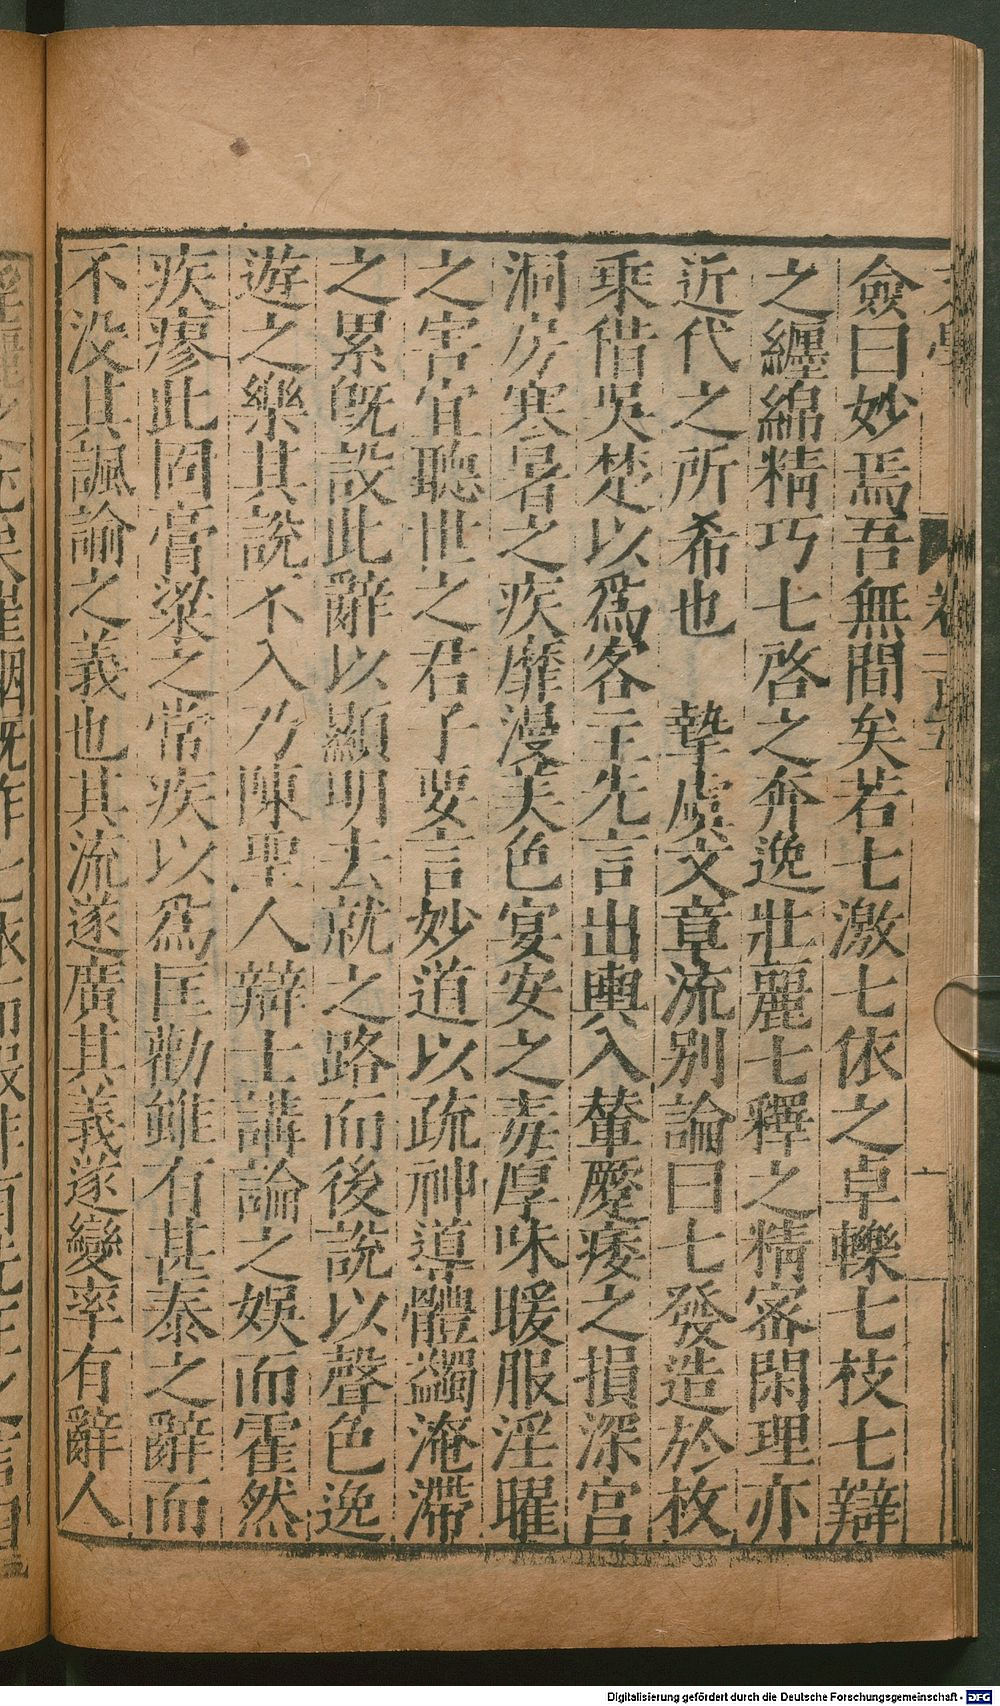 僉曰妙焉吾無間矣若七激七依之卓轢七枝七辯
之纏綿精巧七啓之奔逸壯麗七釋之精密閑理亦
近代之所希也　摯虞文章流別論曰七發造於枚
乘借吳楚以爲客主先言出輿入輦蹷痿之損深宮
洞房寒暑之疾靡漫美色宴安之毒厚味暖服淫曜
之害宜聽世之君子要言妙道以疏神導體蠲淹滯
之累旣設此辭以顯明去就之路而後說以聲色逸
遊之樂其說不入乃陳聖人辯士講論之娛而霍然
疾瘳此固膏粱之常疾以爲匡勸雖有甚泰之辭而
不没其諷論之義也其流遂廣其義遂變率有辭人
Digitalisierung gefördert durch die Deutsche Forschungsgemeinschaft - DFG